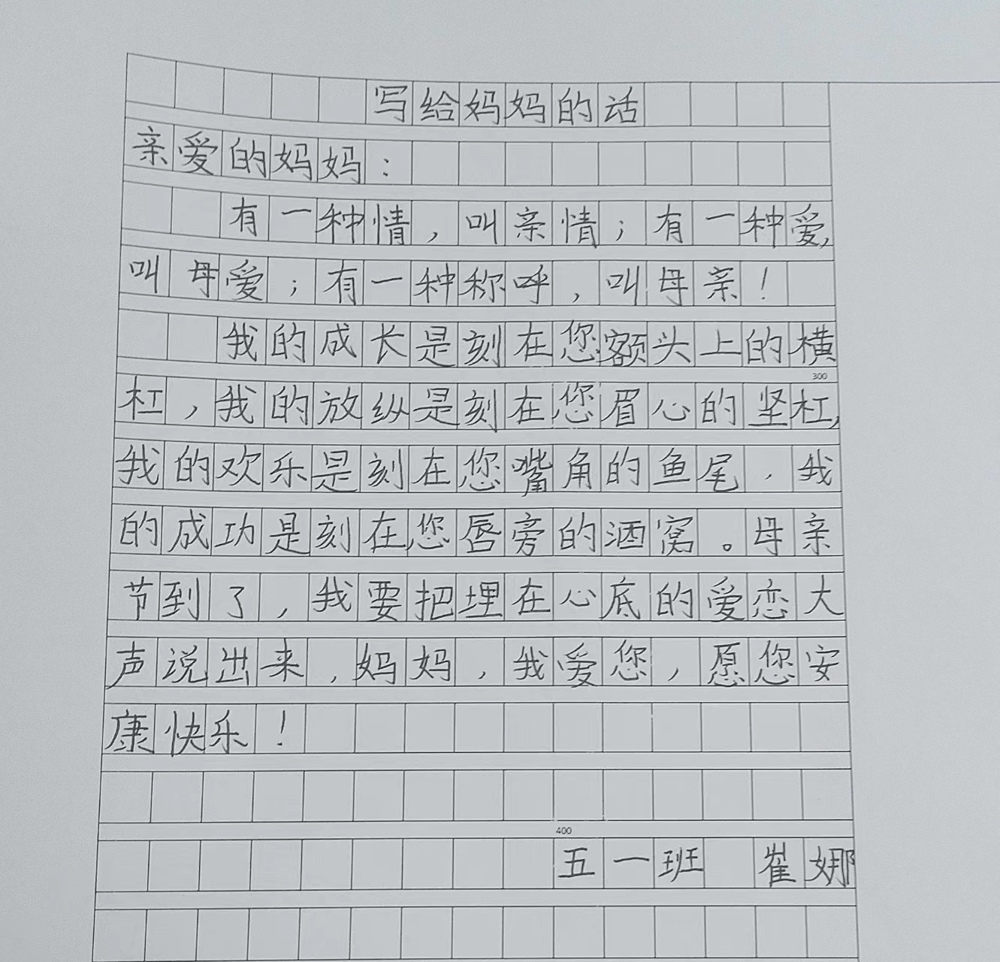 写给妈妈的话
亲爱的妈妈：
有一种情，叫亲情；有一种爱，
叫母爱；有一种称呼，叫母亲！
我的成长是刻在您额头上的横
300
杠，我的放纵是刻在您眉心的坚杠，
我的欢乐是刻在您嘴角的鱼尾，我
的成功是刻在您唇旁的酒窝。母亲
节到了，我要把埋在心底的爱恋大
声说出来，妈妈，我爱您，愿您安
康快乐！
400
五一班 崔娜